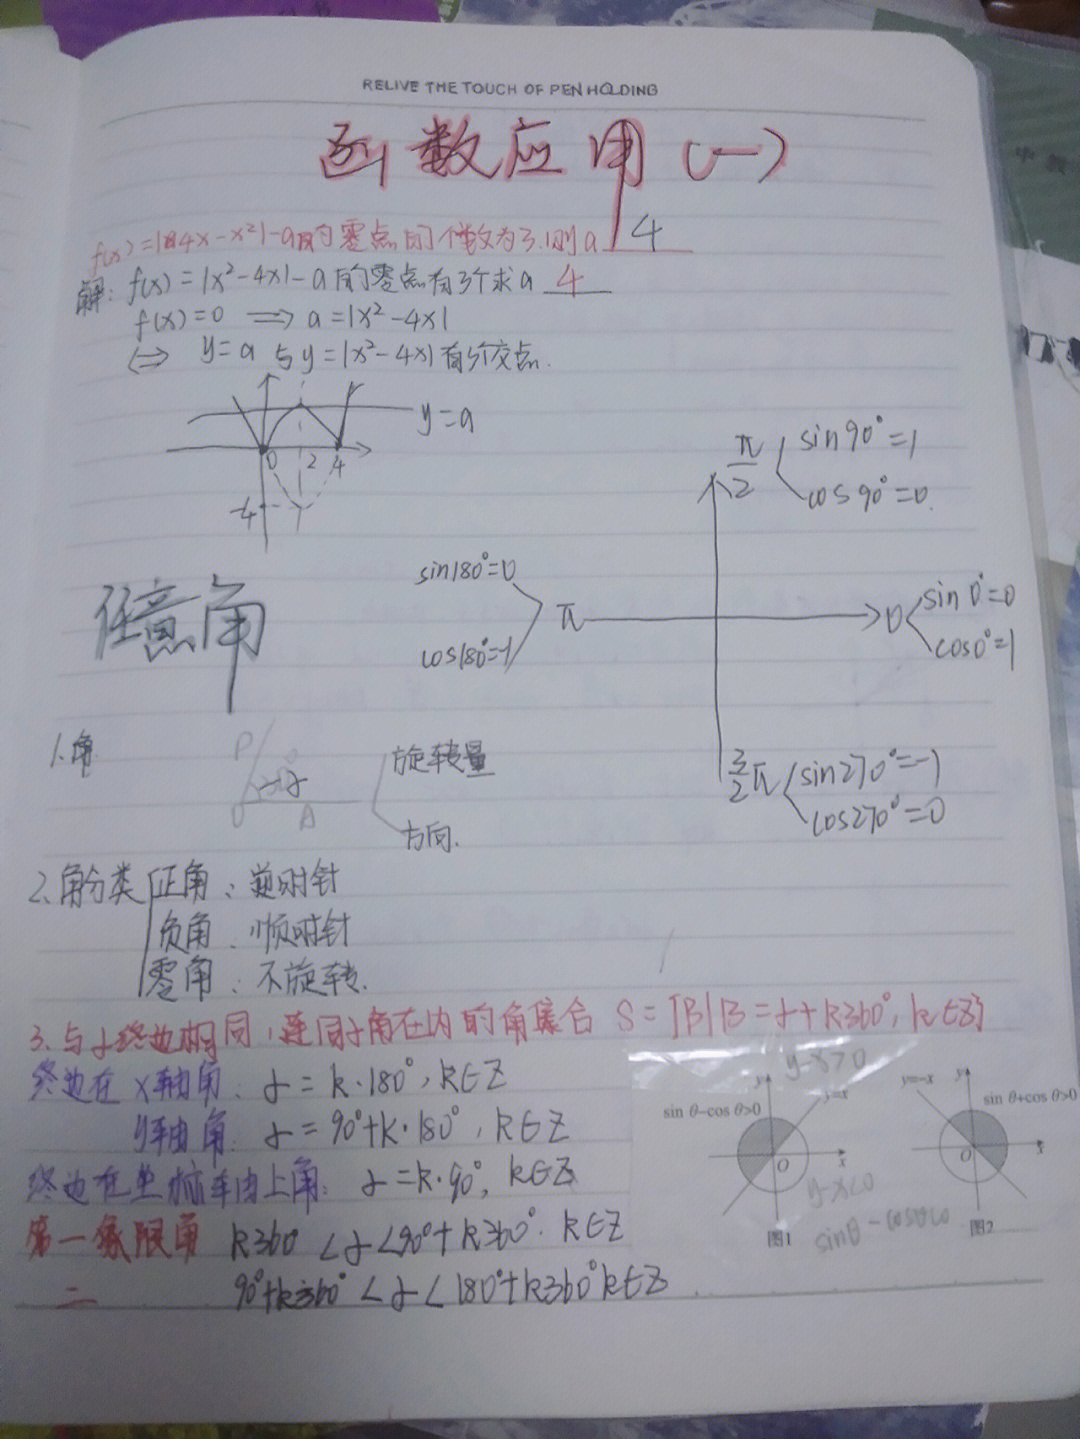 RELIVE THE TOUCH OF PEN HOLDING
函数应用(一)
f(x)=|4x-x²|-a的零点的个数为3.则a 4
解: f(x)=|x²-4x|-a的零点有3个求a 4
f(x)=0 ⟹ a=|x²-4x|
⟺ y=a与y=|x²-4x|有3个交点.
y=a
0 2 4
-4
π/2 sin90°=1
cos90°=0.
sin180°=0
cos180°=-1
π
0 sin0°=0
cos0°=1
3/2π sin270°=-1
cos270°=0
任意角
1.角
P
α
O A
旋转量
方向.
2.角分类 正角:逆时针
负角:顺时针
零角:不旋转.
3.与α终边相同,连同α角在内的角集合 S={β|β=α+k360°,k∈Z}
终边在x轴角:α=k·180°,k∈Z
y轴角:α=90°+k·180°,k∈Z
终边在坐标轴上角:α=k·90°,k∈Z
第一象限角 k360°<α<90°+k360°.k∈Z
二 90°+k360°<α<180°+k360°k∈Z
y-x>0
sin θ-cos θ>0
y y=x
O x
y-x<0
图1
sinθ-cosθ<0
y=-x y
sin θ+cos θ>0
O x
图2